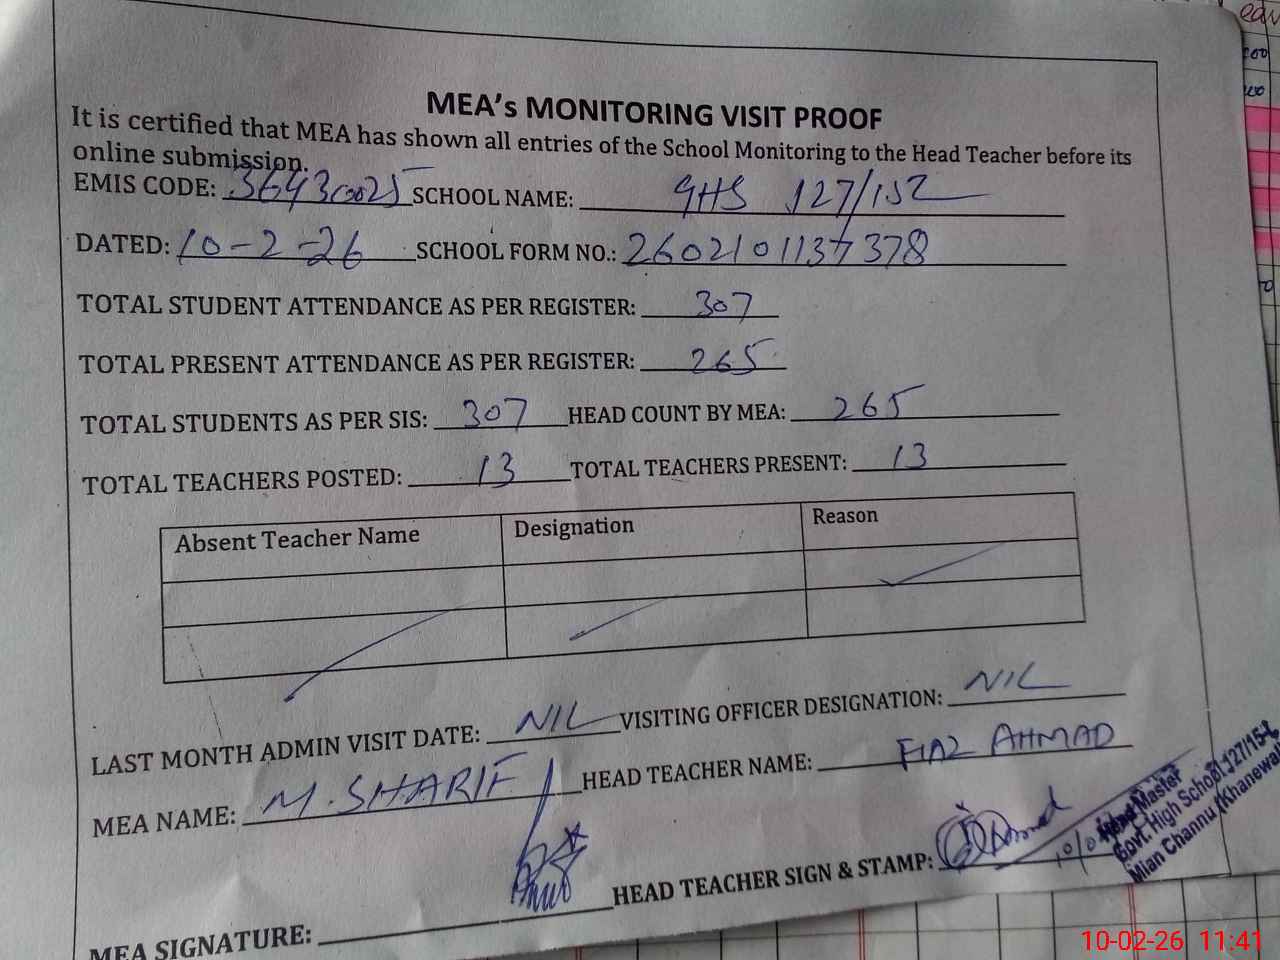 MEA's MONITORING VISIT PROOF
It is certified that MEA has shown all entries of the School Monitoring to the Head Teacher before its
online submission.
EMIS CODE: 36430025 SCHOOL NAME: GHS 127/15L
DATED: 10-2-26 SCHOOL FORM NO.: 2602101137378
TOTAL STUDENT ATTENDANCE AS PER REGISTER: 307
TOTAL PRESENT ATTENDANCE AS PER REGISTER: 265
TOTAL STUDENTS AS PER SIS: 307 HEAD COUNT BY MEA: 265
TOTAL TEACHERS POSTED: 13 TOTAL TEACHERS PRESENT: 13
Absent Teacher Name Designation Reason
LAST MONTH ADMIN VISIT DATE: NIL VISITING OFFICER DESIGNATION: NIL
MEA NAME: M. SHARIF HEAD TEACHER NAME: FIAZ AHMAD
MEA SIGNATURE: HEAD TEACHER SIGN & STAMP:
Head Master
Govt. High School 127/15-L
Mian Channu (Khanewal
10-02-26 11:41